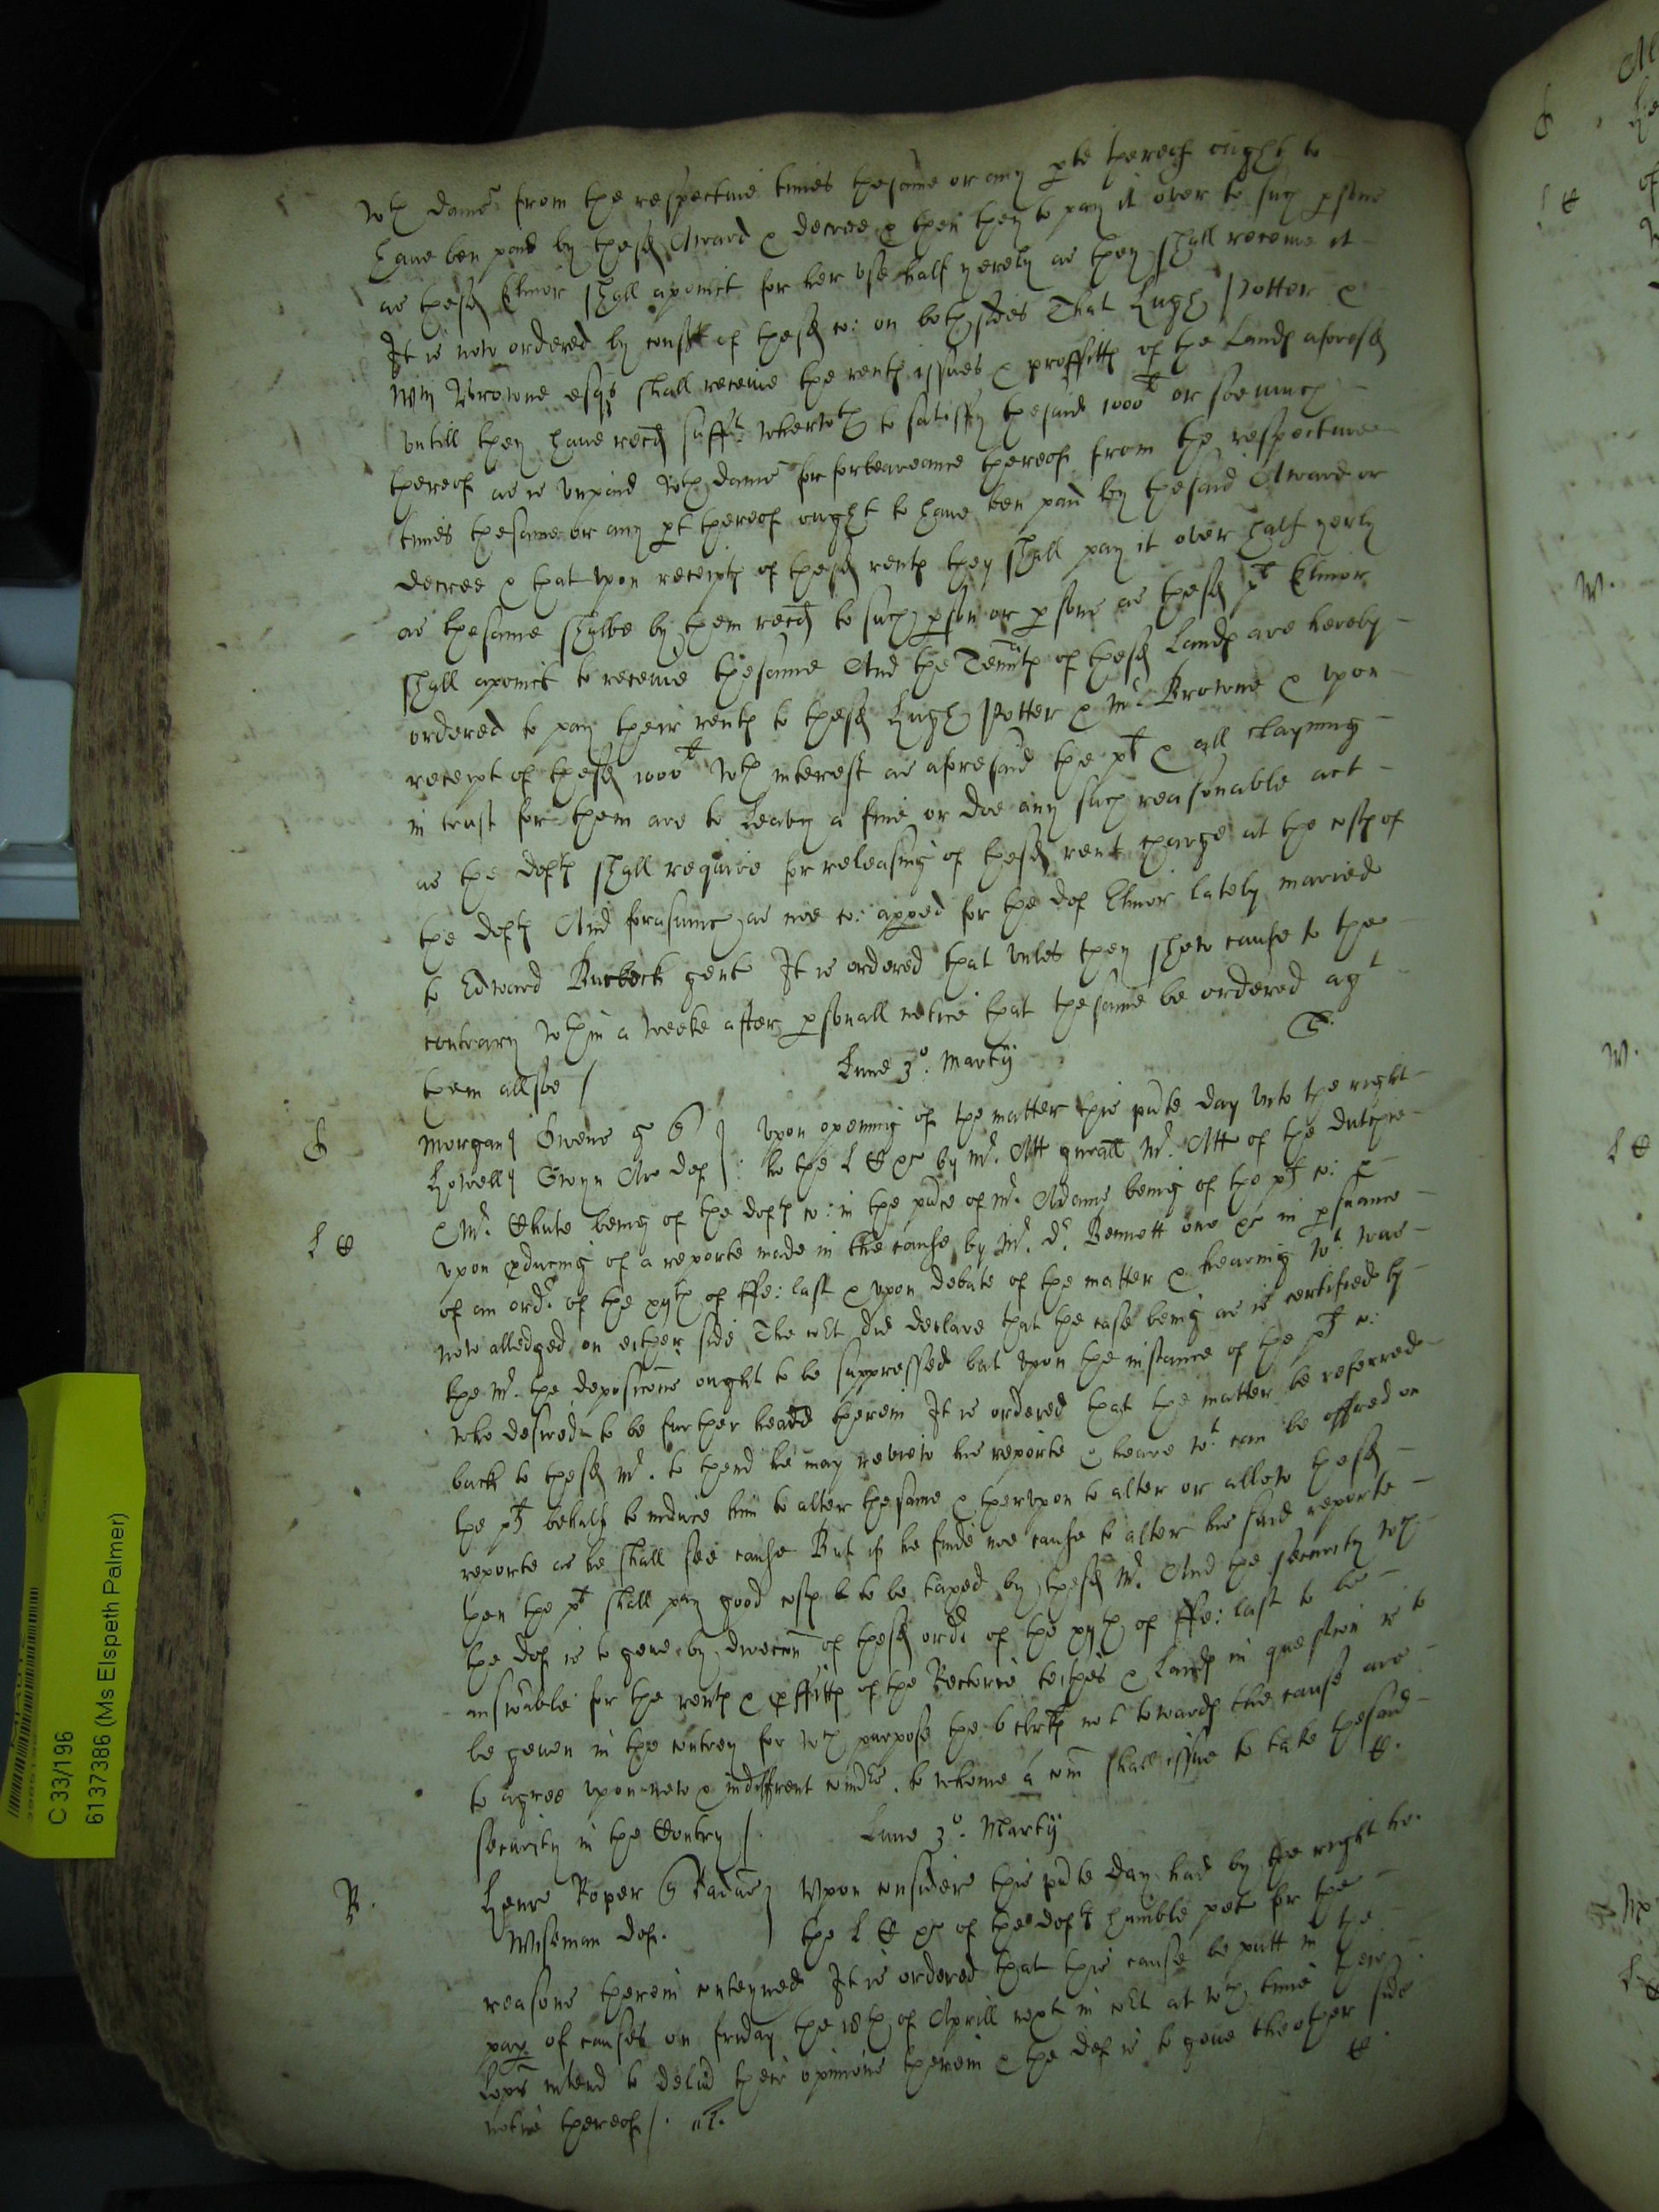 wth dam̄ from the respective times thesame or any pte thereof ought to
have ben paid by thesd Award & decree & then they to pay it over to such psons
as thesd Elinor shall apoinct for her use half yerely as they shall receive it
It is now ordered by consᵗ of thesd co: on both sides That Hugh Potter &
Wm Browne esqs shall receive the rents issues & proffitts of the Lands aforesd
untill they have recd suffᵗ wherwth to satisfy thesaid 1000ˡ or soe much
thereof as is unpaid wth dam̄ for forbearance thereof from the respective
times thesame or any pt thereof ought to have ben paid by thesaid Award or
decree & that upon receipt of thesd rents they shall pay it over half yerly
as thesame shalbe by them recd to such pson or psons as thesd plt Elinor
shall apoinct to receive thesame And the Tennts of thesd Lands are hereby
ordered to pay their rents to thesd Hugh Potter & Mr. Browne & upon
receipt of thesd 1000ˡ wth interest as aforesaid the plt & all clayming
in trust for them are to Leavy a fine or doe any such reasonable act
as the defts shall require for releasing of thesd rent charge at the costs of
the defts And forasmuch as noe co: apped for the def Elinor lately maried
to Edward Burbeck gent It is ordered that unles they shew cause to the
contrary wthin a weeke after psonall notice that thesame be ordered agt
them allsoe /
T.
Lune 3º. Martij
G
Morgan Owens q Howell Gwyn Ar def
Upon opening of the matter this pnte day unto the right
ho the L C &c by Mr. Att gnrall Mr. Att of the dutchie
L C
& Mr. Chute being of the defts co: in the pnce of Mr. Adams being of the plt co: &
upon pducing of a reporte made in the cause by Mr. Dr. Bennett one &c in psuance
of an ordr of the xijth of ffe: last & upon debate of the matter & hearing wt. was
now alledged on either side The cort did declare that the case being as is certified by
the Mr. the deposicons ought to be suppressed but upon the instance of the plt co:
who desired to be further heard therein It is ordered that the matter be referred
back to thesd Mr. to thend he may review his reporte & heare wt. can be offred on
the plt behalf to induce him to alter thesame & therupon to alter or allow thesd
reporte as he shall see cause But if he finde noe cause to alter his said reporte
then the plt shall pay good costs to be taxed by thesd Mr. And the security wch
the def is to geve by direccon of thesd ordr of the xijth of ffe: last to be
answerable for the rents & pffitts of the Rectorie teithes & Lands in question is to
be geven in the contrey for wch purpose the 6 clrks not towards the cause are
to agree upon new & indiffrent comrs. to whome a com̄ shall issue to take thesaid
security in the Contry /.
C.
Lune 3º. Martij
R.
Henr Roper q
Wiseman def.
Upon consideracon this pnte day had by the right ho.
the L C &c of the defts humble peticon for the
reasons therein conteyned It is ordered that this cause be putt in the
pap of causes on friday the 18th of Aprill next in cort at wch time their
Lopps intend to deliv̄ their opinions therein & the def is to geve the other side
notice thereof /.
C.
C 33/196
6137386 (Ms Elspeth Palmer)